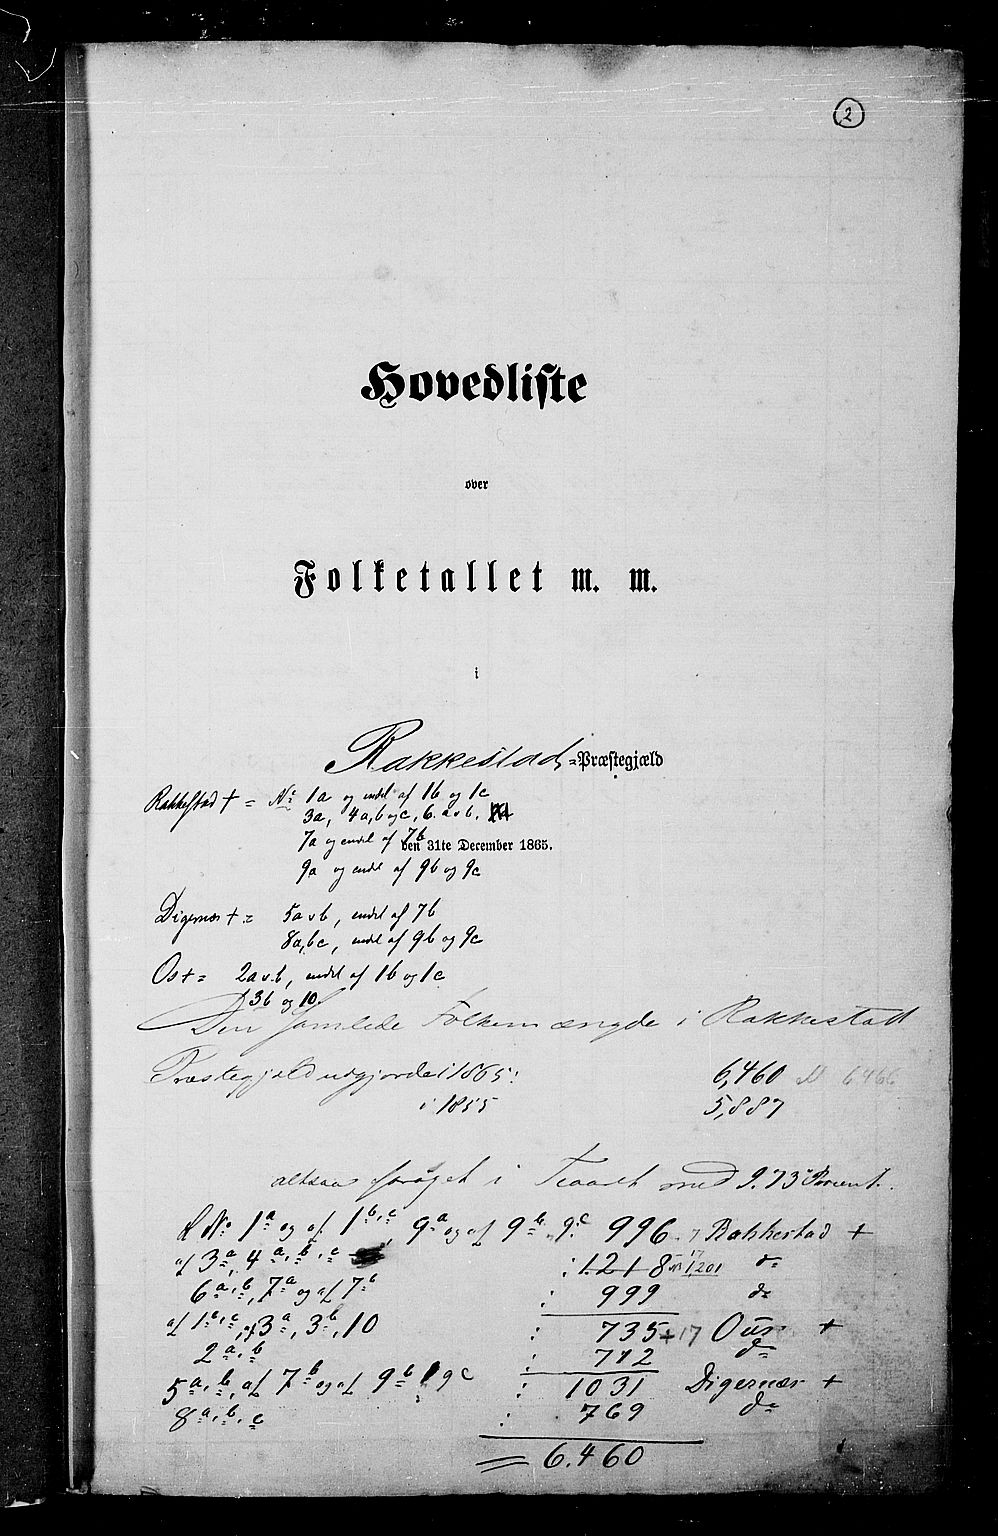 2
Hovedliste
over
Folketallet m. m.
i
Rakkestad =Præstegjæld
Rakkestad + = No 1a og endel af 1b og 1c
3a, 4a,b og c, 6.a o b.
7a og endel af 7b
den 31te December 1865.
9a og endel af 9b og 9c
Digernæs + = 5a o b, endel af 7b
8a,b c, endel af 9b og 9c
Os + = 2a o.b, endel af 1b og 1c
3b og 10
Den samlede Folkemængde i Rakkestad
Præstegjæld udgjorde i 1865: 6,460 6466
i 1855 5,887
altsaa forøget i Tiaaret med 9.73 Procent.
No 1a og af 1b, c, 9a og af 9b, 9c 996 Rakkestad +
af 3a, 4a, b, c : 1.218 17 1,201 do
6a, b, 7a og af 7b : 999 do
af 1b, c, af 3a, 3b, 10 : 735 + 17 Ous +
2a, b : 712 do
5a, b, af 7b og af 9b 9c : 1031 Digernæs +
8a, b, c : 769 do
= 6.460